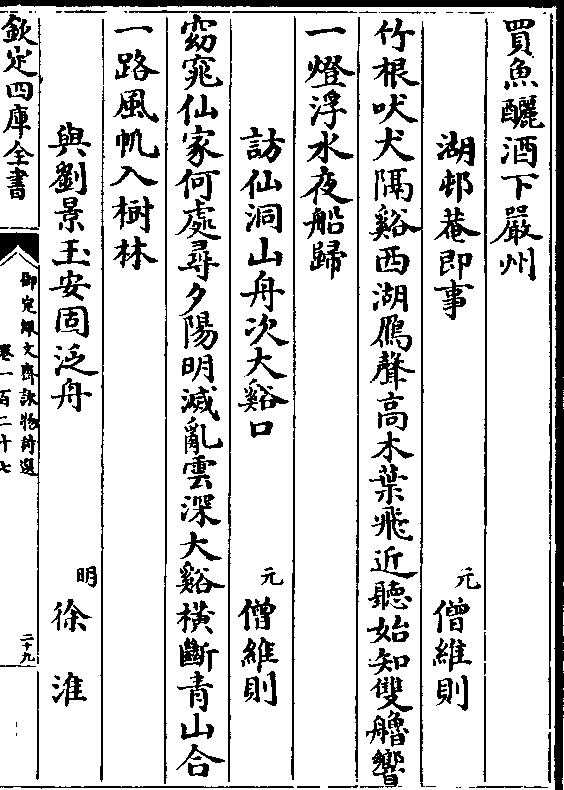 買魚釃酒下嚴州
湖邨菴即事　元　僧維則
竹根吠犬隔谿西湖鴈聲高木葉飛近聽始知雙艣響
一燈浮水夜船歸
訪仙洞山舟次大谿口　元　僧維則
窈窕仙家何處尋夕陽明滅亂雲深大谿橫斷青山合
一路風帆入樹林
與劉景玉安固泛舟　明　徐淮
欽定四庫全書
御定佩文齋詠物詩選
卷一百二十七
二十九